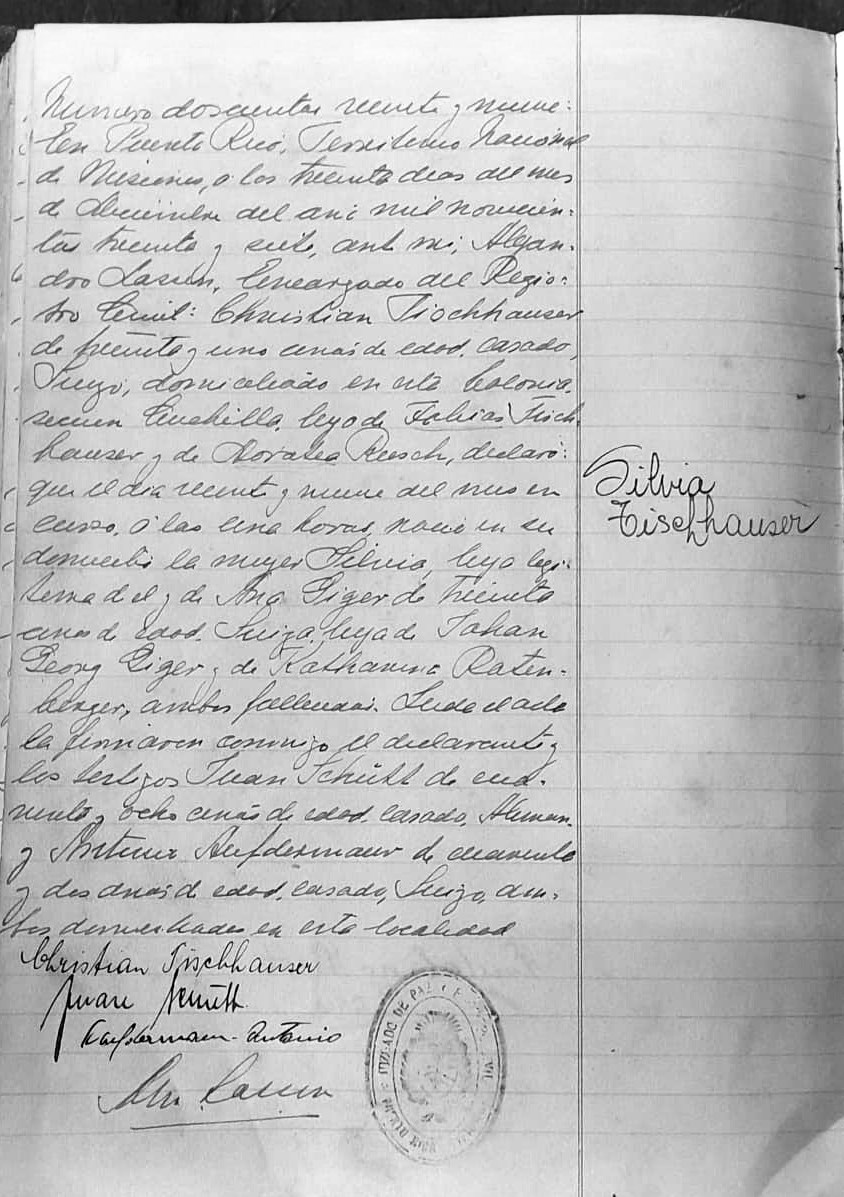 Numero doscientos veinte y nueve:
En Puerto Rico, Territorio Nacional
de Misiones, a los treinta dias del mes
de Diciembre del año mil novecien-
tos treinta y siete, ante mi, Alejan-
dro Lasun, Encargado del Regis-
tro Civil: Christian Tischhauser
de treinta y uno años de edad, casado,
Suizo, domiciliado en esta Colonia,
seccion Cuchilla, hijo de Tobias Tisch-
hauser y de Dorotea Reusch, declaró:
que el dia veinte y nueve del mes en
curso, a las una horas, nació en su
domicilio la mujer Silvia, hija legi-
tima del y de Ana Giger de treinta
años de edad, Suiza, hija de Johan
Georg Giger y de Katharina Raten-
berger, ambos fallecidos. Leida el acta
la firmaron conmigo el declarante y
los testigos Juan Schütt de cua-
renta y ocho años de edad, casado, Aleman,
y Antonio Aufdermaur de cuarenta
y dos años de edad, casado, Suizo, am-
bos domiciliados en esta localidad
Silvia
Tischhauser
Christian Tischhauser
Juan Schütt
Aufdermaur Antonio
Lasun
JUZGADO DE PAZ